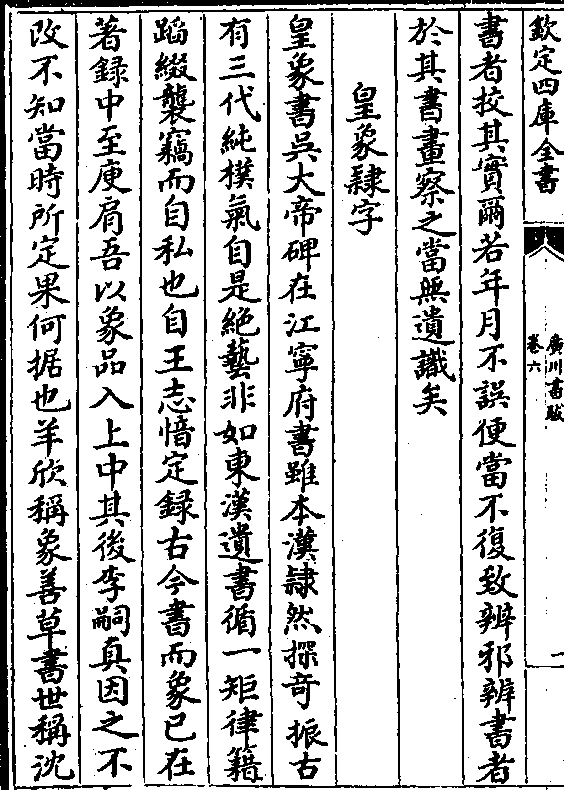 欽定四庫全書
廣川書跋
卷六
一
書者挍其實爾若年月不誤便當不復致辨邪辨書者
於其書畫察之當無遺識矣
皇象隷字
皇象書吳大帝碑在江寧府書雖本漢隷然探奇振古
有三代純樸氣自是絶藝非如東漢遺書循一矩律籍
蹈綴襲竊而自私也自王志愔定録古今書而象已在
著録中至庾肩吾以象品入上中其後李嗣真因之不
改不知當時所定果何据也羊欣稱象善草書世稱沈